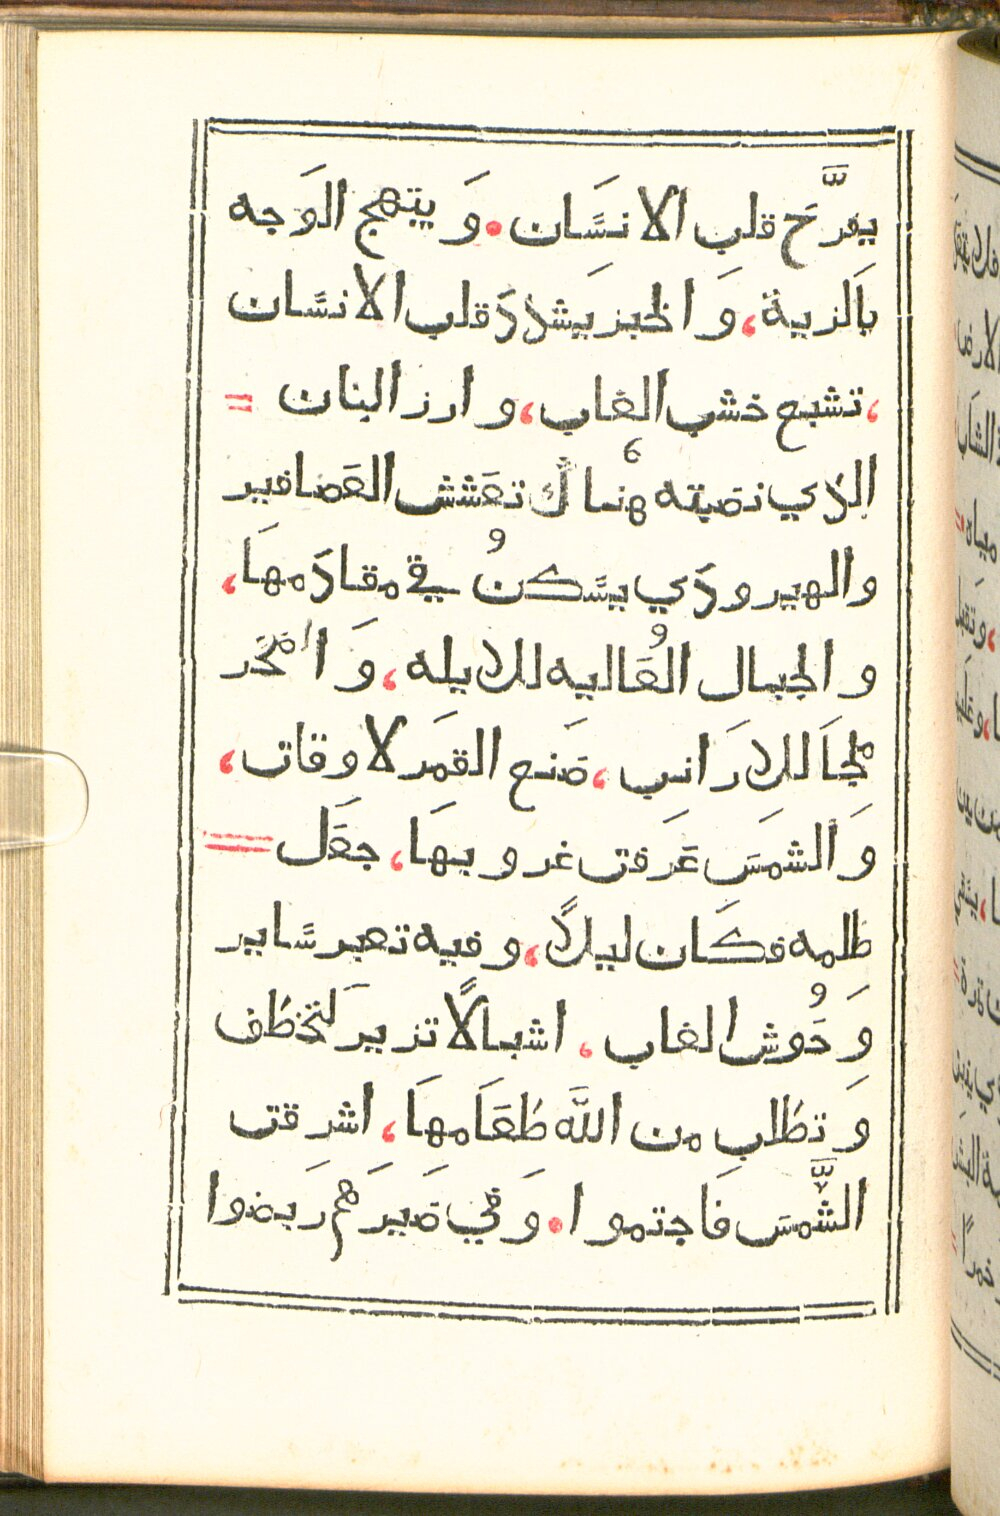 يفرَّح قلب الانسَان. وَيبتهج الوَجه
بالزيت، وَالخبز يشدد قلب الانسَان
، تشبع خشب الغاب، وارز البنان =
الذي نصبته هناك تعَشش العَصافير
والهيرودي يسَكنُ في مقادمهَا،
والجبال العَاليه للايله، وَالصخر
ملجَا للارَانب، صَنع القمَر لاوقات،
وَالشمسَ عَرَفت غروبهَا، جعَل =
ظلمه فكَان ليلاً، وفيه تعبر سَاير
وَحُوش الغاب، اشبالاً تزير لتخطف
وَتطلب من اللَّه طعَامهَا، اشرقت
الشَّمسَ فَاجتموا. وَفي صَيرَهم رَبضوا